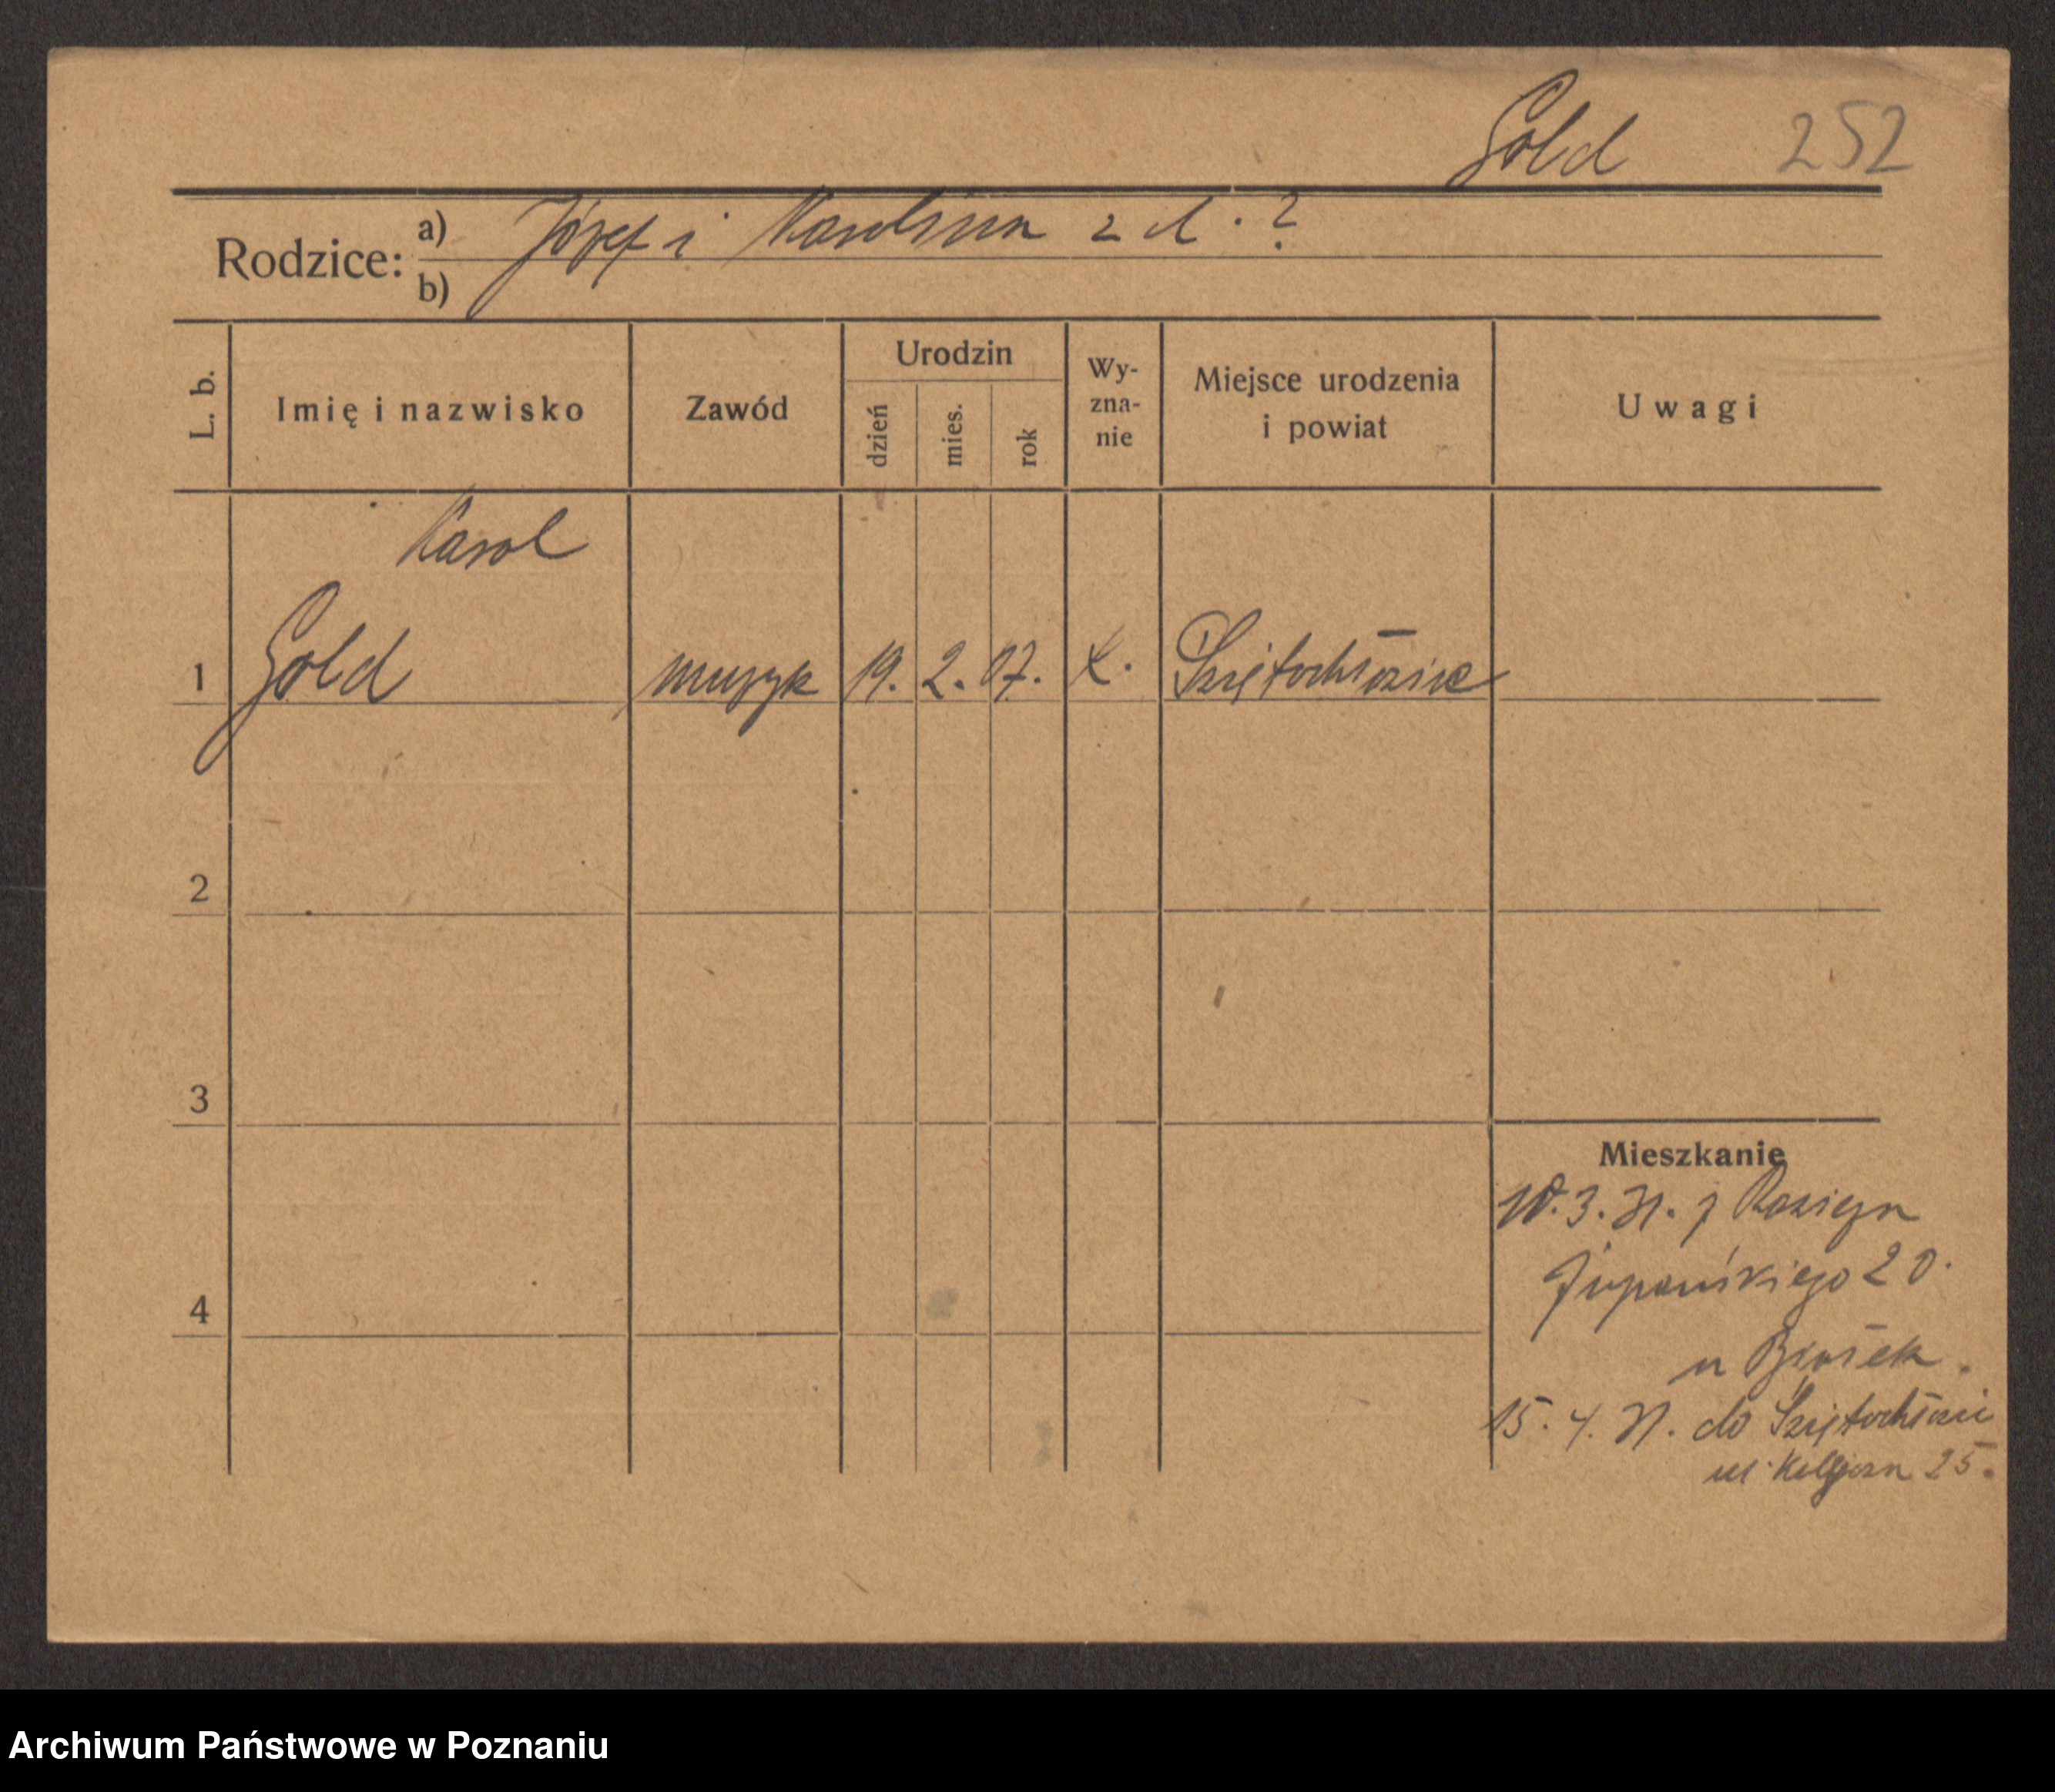 Gold 252
Rodzice: a) Józef i Karolina z d. ?
b)
L. b. Imię i nazwisko Zawód Urodzin dzień mies. rok Wy-zna-nie Miejsce urodzenia i powiat Uwagi
Karol
1 Gold muzyk 19. 2. 07. k. Świętochłowice
2
3
Mieszkanie
3. 31. z
4 Żupańskiego 20.
u
15. 4. 31. do Świętochłowic
ul. 25.
Archiwum Państwowe w Poznaniu